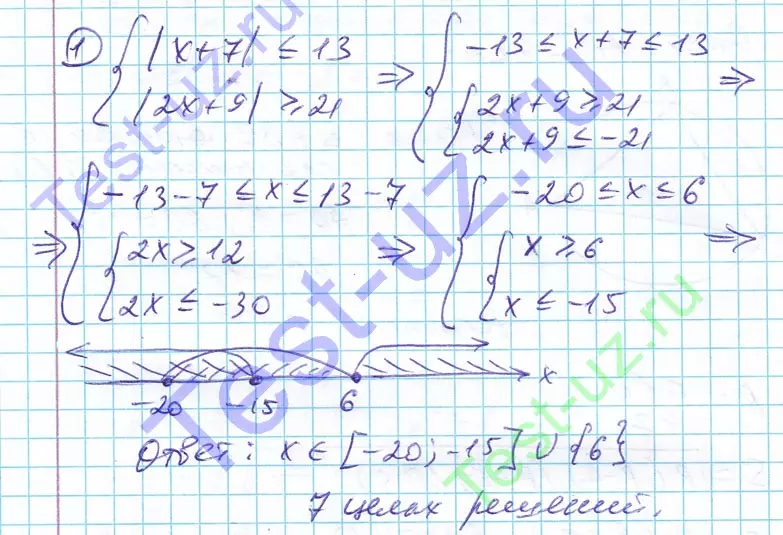 ① { |x+7| ≤ 13 ⇒ { -13 ≤ x+7 ≤ 13 ⇒
{ |2x+9| ≥ 21 { 2x+9 ≥ 21
{ 2x+9 ≤ -21
⇒ { -13-7 ≤ x ≤ 13-7 ⇒ { -20 ≤ x ≤ 6 ⇒
{ 2x ≥ 12 { x ≥ 6
{ 2x ≤ -30 { x ≤ -15
-20 -15 6 x
Ответ: x ∈ [-20; -15] ∪ {6}
7 целых решений.
Test-uz.ru
Test-uz.ru
Test-uz.ru